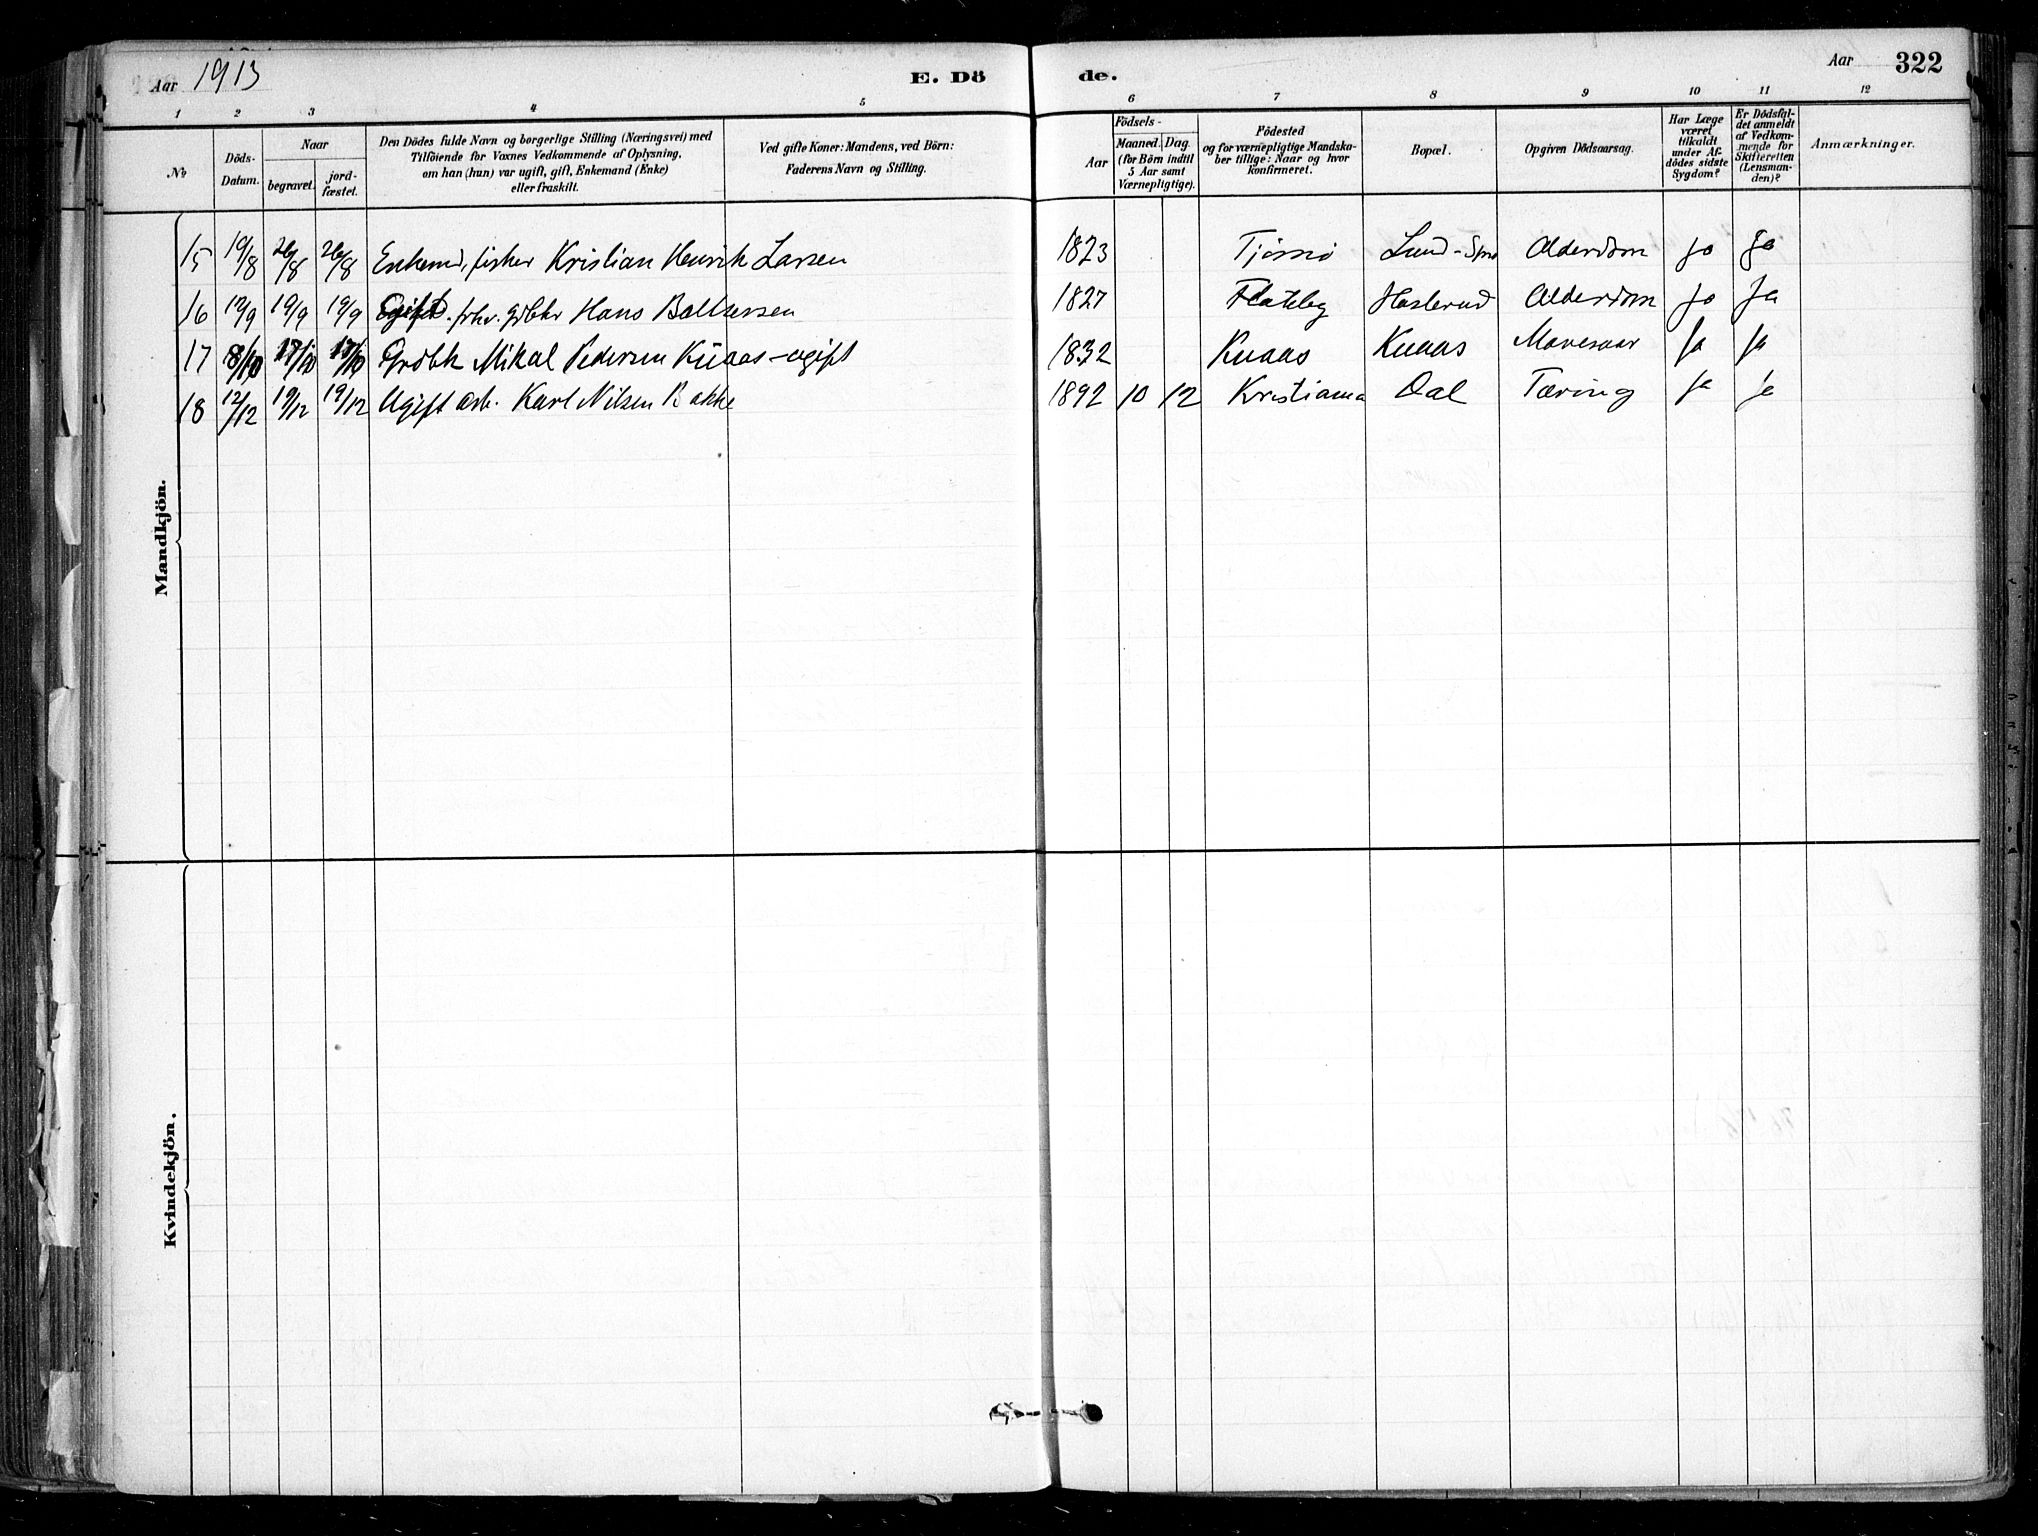 Aar 1913 E. Dö de. Aar 322
1 2 3 4 5 6 7 8 9 10 11 12
No
Döds-Datum.
Naar
begravet.
jord-fæstet.
Den Dödes fulde Navn og borgerlige Stilling (Næringsvei) med
Tilföiende for Voxnes Vedkommende af Oplysning,
om han (hun) var ugift, gift, Enkemand (Enke)
eller fraskilt.
Ved gifte Koner: Mandens, ved Börn:
Faderens Navn og Stilling.
Födsels-
Aar
Maaned. Dag.
(for Börn indtil
5 Aar samt
Værnepligtige).
Födested
og for værnepligtige Mandska-
ber tillige: Naar og hvor
konfirmeret.
Bopæl.
Opgiven Dödsaarsag.
Har Læge
været
tilkaldt
under Af-
dödes sidste
Sygdom?
Er Dödsfal-
det anmeldt
af Vedkom-
mende for
Skifteretten
(Lensman-
den)?
Anmærkninger.
Mandkjön.
15 19/8 26/8 26/8 Enkemd, fisker Kristian Henrik Larsen 1823 Tjømø Lund Alderdom Ja Ja
16 12/9 19/9 19/9 Gift. frhv. Gdbkr Hans Baltsersen 1827 Flateby Haslerud Alderdom Ja Ja
17 8/10 17/10 17/10 Grdbk Mikal Pedersen Knaas - ugift 1832 Knaas Knaas Mavesaar Ja Ja
18 12/12 19/12 19/12 Ugift arb. Karl Nilsen Bakke 1892 10 12 Kristiania Dal Tæring Ja Ja
Kvindekjön.